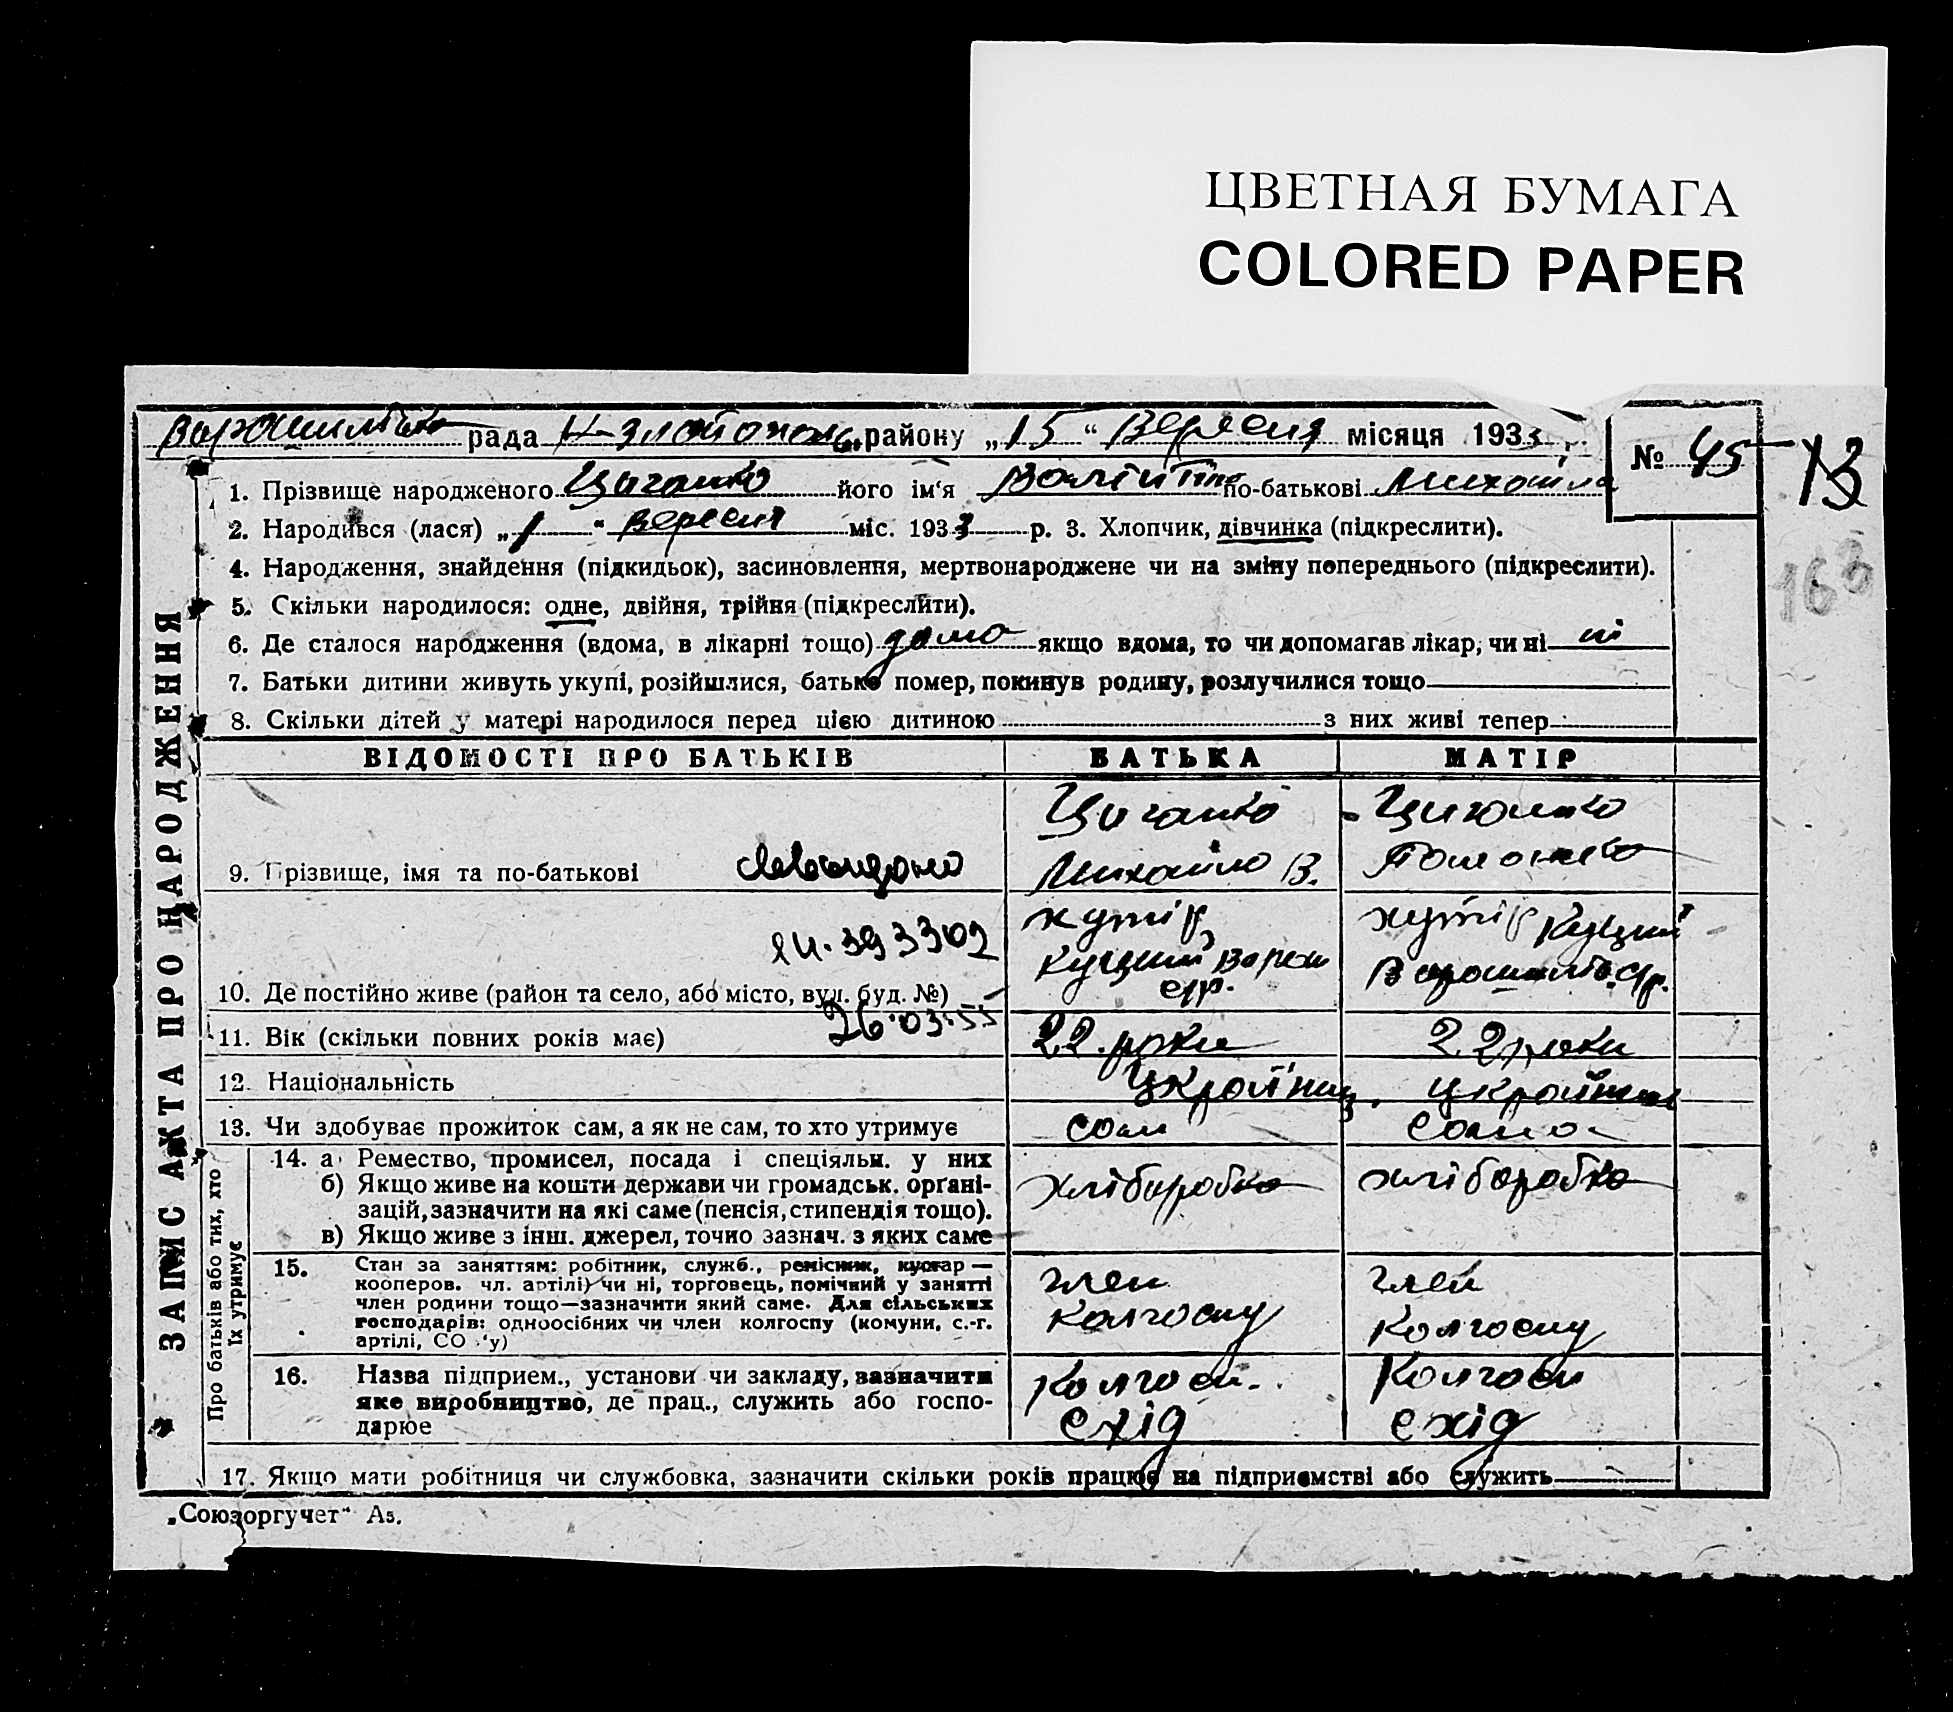 ЦВЕТНАЯ БУМАГА
COLORED PAPER
рада району „15“ Вересня місяця 1933 р.
№ 45
13
163
1. Прізвище народженого Циганко його ім‘я Валітіна по-батькові Михайлів
2. Народився (лася) „1“ вересня міс. 1933 р. 3. Хлопчик, дівчинка (підкреслити).
4. Народження, знайдення (підкидьок), засиновлення, мертвонароджене чи на зміну попереднього (підкреслити).
5. Скільки народилося: одне, двійня, трійня (підкреслити).
6. Де сталося народження (вдома, в лікарні тощо) дома якщо вдома, то чи допомагав лікар, чи ні ні
7. Батьки дитини живуть укупі, розійшлися, батько помер, покинув родину, розлучилися тощо
8. Скільки дітей у матері народилося перед цією дитиною з них живі тепер
ЗАПИС АКТА ПРО НАРОДЖЕННЯ
ВІДОМОСТІ ПРО БАТЬКІВ БАТЬКА МАТІР
9. Прізвище, імя та по-батькові
Циганко
Михайло В.
Циганко
393302
10. Де постійно живе (район та село, або місто, вул. буд. №)
хутір
Куций Ворош
с/р.
хутір Куций
с/р.
26.03.55
11. Вік (скільки повних років має) 22 роки 22 роки
12. Національність україн.
13. Чи здобуває прожиток сам, а як не сам, то хто утримує сам сама
Про батьків або тих, хто
їх утримує
14. а) Ремество, промисел, посада і спеціяльн. у них
б) Якщо живе на кошти держави чи громадськ. органі-
зацій, зазначити на які саме (пенсія, стипендія тощо).
в) Якщо живе з інш. джерел, точно зазнач. з яких саме
хліборобка
хліборобка
15. Стан за заняттям: робітник, служб., ремісник, кустар —
кооперов. чл. артілі) чи ні, торговець, помічний у занятті
член родини тощо—зазначити який саме. Для сільських
господарів: одноосібних чи член колгоспу (комуни, с.-г.
артілі, СО 'у)
член
колгоспу
член
колгоспу
16. Назва підприєм., установи чи закладу, зазначити
яке виробництво, де прац., служить або госпо-
дарює
Колгосп
схід
Колгосп
схід
17. Якщо мати робітниця чи службовка, зазначити скільки років працює на підприємстві або служить
„Союзоргучет“ А5.